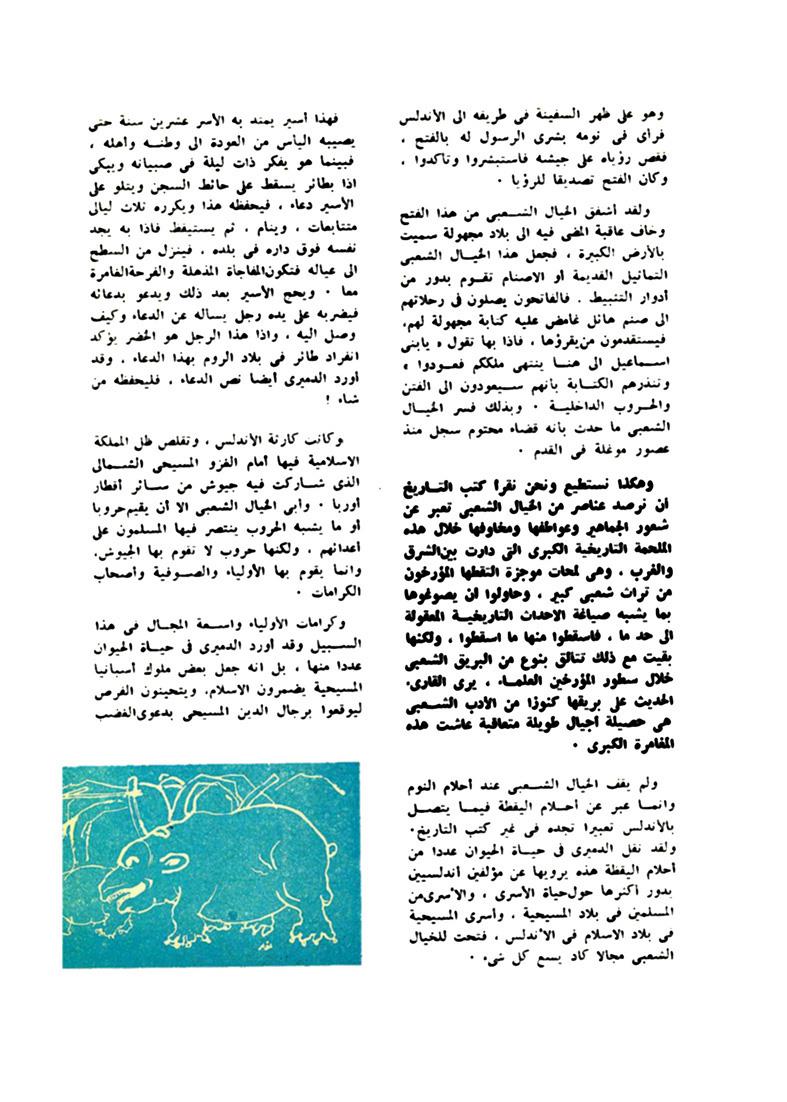 وهو على ظهر السفينة فى طريقه الى الأندلس
فرأى فى نومه بشرى الرسول له بالفتح ،
فقص رؤياه على جيشه فاستبشروا وتأكدوا ،
وكان الفتح تصديقا للرؤيا ٠
ولقد أشفق الخيال الشـعبى من هذا الفتح
وخاف عاقبة المضى فيه الى بلاد مجهولة سميت
بالأرض الكبيرة ، فجعل هذا الخيـال الشعبى
التماثيل القديمة أو الاصنام تقـوم بدور من
أدوار التثبيط . فالفاتحون يصلون فى رحلاتهم
الى صنم هائل غامض عليه كتابة مجهولة لهم،
فيستقدمون من يقرؤها ، فاذا بها تقول « يابنى
اسـماعيل الى هنـا ينتهى ملككم فعـودوا »
وتنذرهم الكتـابة بأنهم سـيعودون الى الفتن
والحـروب الداخليـة ٠ وبذلك فسر الخيـال
الشعبى ما حدث بأنه قضاء محتوم سجل منذ
عصور موغلة فى القدم ٠
وهكذا نستطيع ونحن نقرأ كتب التـاريخ
أن نرصد عناصر من الخيال الشعبى تعبر عن
شعور الجماهير وعواطفها ومخاوفها خلال هذه
الملحمة التاريخية الكبرى التى دارت بين الشرق
والغرب ، وهى لمحات موجزة التقطها المؤرخون
من تراث شعبى كبير ، وحاولوا أن يصوغوها
بما يشبه صياغة الاحداث التاريخيـة المعقولة
الى حد ما ، فأسقطوا منها ما اسقطوا ، ولكنها
بقيت مع ذلك تتألق بنوع من البريق الشعبى
خلال سطور المؤرخين العلمـاء ، يرى القارىء
الحديث على بريقها كنوزا من الأدب الشـعبى
هى حصيلة أجيال طويلة متعاقبة عاشت هذه
المغامرة الكبرى ٠
ولم يقف الخيال الشـعبى عند أحلام النوم
وانمـا عبر عن أحـلام اليقظة فيمـا يتصـل
بالأندلس تعبيرا تجده فى غير كتب التاريخ٠
ولقد نقل الدميرى فى حيـاة الحيوان عددا من
أحلام اليقظة هذه يرويها عن مؤلفين أندلسيين
يدور أكثرها حول حياة الأسرى ، والأسرى من
المسلمين فى بلاد المسيحية ، وأسرى المسيحية
فى بلاد الاسلام فى الأندلس ، فتحت للخيال
الشعبى مجالا كاد يسع كل شىء ٠
فهذا أسير يمتد به الأسر عشرين سنة حتى
يصيبه اليأس من العودة الى وطنـه وأهله ،
فبينما هو يفكر ذات ليلة فى صبيانه ويبكى
اذا بطائر يسقط على حائط السجن ويتلو على
الأسير دعاء ، فيحفظه هذا ويكرره ثلاث ليالى
متتابعات ، وينام ، ثم يستيقظ فاذا به يجد
نفسه فوق داره فى بلده . فينزل من السطح
الى عياله فتكون المفاجأة المذهلة والفرحة الغامرة
معا ٠ ويحج الأسير بعد ذلك ويدعو بدعائه
فيضربه على يده رجل يسأله عن الدعاء وكيف
وصل اليه ، واذا هذا الرجل هو الخضر يؤكد
انفراد طائر فى بلاد الروم بهذا الدعاء . وقد
أورد الدميرى أيضا نص الدعاء ، فليحفظه من
شاء !
وكانت كارثة الأندلس ، وتقلص ظل المملكة
الاسلامية فيها أمام الغزو المسيحى الشـمالى
الذى شـاركت فيه جيوش من سـائر أقطار
أوربا ٠ وأبى الخيال الشعبى الا أن يقيم حروبا
أو ما يشبه الحروب ينتصر فيها المسلمون على
أعدائهم ، ولكنها حروب لا تقوم بها الجيوش،
وانما يقوم بها الأولياء والصـوفية وأصحاب
الكرامات ٠
وكرامات الأولياء واسـعة المجـال فى هذا
السـبيل وقد أورد الدميرى فى حيـاة الحيوان
عددا منها ، بل انه جعل بعض ملوك أسبانيا
المسيحية يضمرون الاسلام، ويتحينون الفرص
ليوقعوا برجال الدين المسيحى بدعوى الغضب